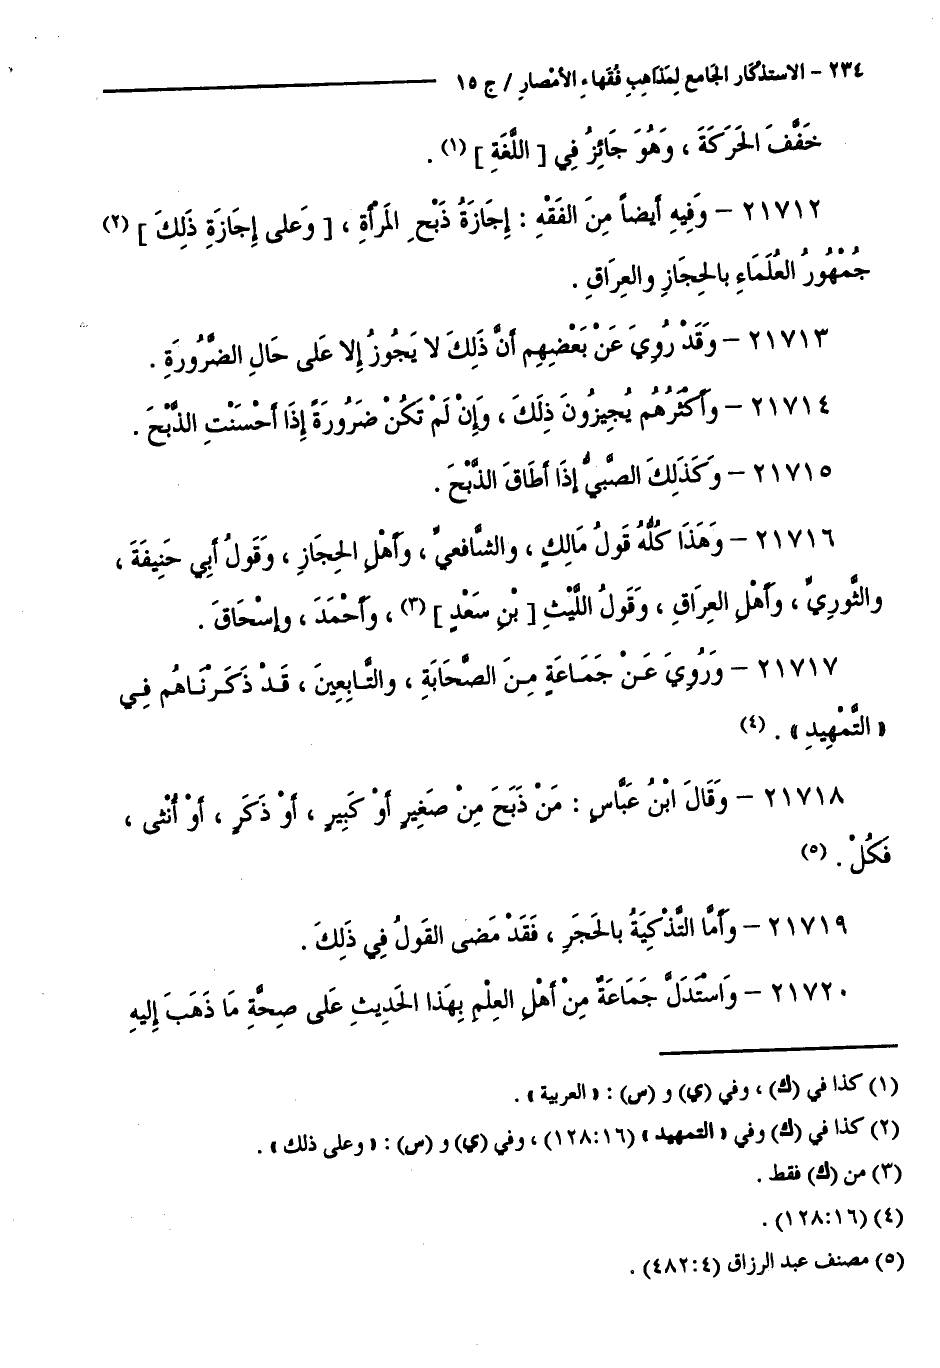 ٢٣٤ - الاستذكار الجامع لِمَذاهِبِ فُقَهاءِ الأمْصارِ / ج ١٥
خَفَّفَ الحَرَكَةَ ، وَهُوَ جَائِزٌ فِي [ اللَّغَةِ ] (١) .
٢١٧١٢ – وَفِيهِ أيضاً مِنَ الفَقْهِ : إِجَازَةُ ذَبْحِ المَرأَةِ ، [ وَعَلى إِجَازَةِ ذَلِكَ ] (٢)
جُمْهُورُ العُلَمَاءِ بالحِجَازِ والعِرَاقِ .
٢١٧١٣ – وَقَدْ رُوِيَ عَنْ بَعْضِهِم أَنَّ ذَلِكَ لا يَجُوزُ إِلا عَلى حَالِ الضَّرُورَةِ .
٢١٧١٤ – وأَكْثَرُهُم يُجِيزُونَ ذَلِكَ ، وَإِنْ لَمْ تَكُنْ ضَرُورَةً إِذَا أَحْسَنْتِ الذَّبْحَ .
٢١٧١٥ – وَكَذَلِكَ الصَّبيُّ إِذَا أَطَاقَ الذَّبْحَ .
٢١٧١٦ – وَهَذَا كُلُّهُ قَولُ مَالِكٍ ، والشَّافعيِّ ، وأَهْلِ الحِجَازِ ، وَقَولُ أَبِي حَنِيفَةَ ،
والثَّوريِّ ، وأَهْلِ العِرَاقِ ، وَقَولُ اللَّيْثِ [ بْنِ سَعْدٍ ] (٣) ، وأَحْمَدَ ، وإِسْحَاقَ .
٢١٧١٧ – وَرُوِيَ عَنْ جَمَاعَةٍ مِنَ الصَّحَابَةِ ، والتَّابِعِينَ ، قَدْ ذَكَرْنَاهُم فِي
« التَّمْهِيدِ » . (٤)
٢١٧١٨ – وَقَالَ ابْنُ عَبَّاسٍ : مَنْ ذَبَحَ مِنْ صَغِيرٍ أَوْ كَبِيرٍ ، أَوْ ذَكَرٍ ، أَوْ أُنْثى ،
فَكُلْ . (٥)
٢١٧١٩ – وأَمَّا التَّذْكِيَةُ بالحَجَرِ ، فَقَدْ مَضى القَولُ فِي ذَلِكَ .
٢١٧٢٠ – وَاسْتَدَلَّ جَمَاعَةٌ مِنْ أَهْلِ العِلْمِ بِهَذا الحَدِيثِ عَلى صِحَّةِ مَا ذَهَبَ إِليهِ
(١) كذا في (ك) ، وفي (ي) و (س) : « العربية » .
(٢) كذا في (ك) وفي « التمهيد » (١٢٨:١٦) ، وفي (ي) و (س) : « وعلى ذلك » .
(٣) من (ك) فقط .
(٤) (١٢٨:١٦) .
(٥) مصنف عبد الرزاق (٤٨٢:٤) .